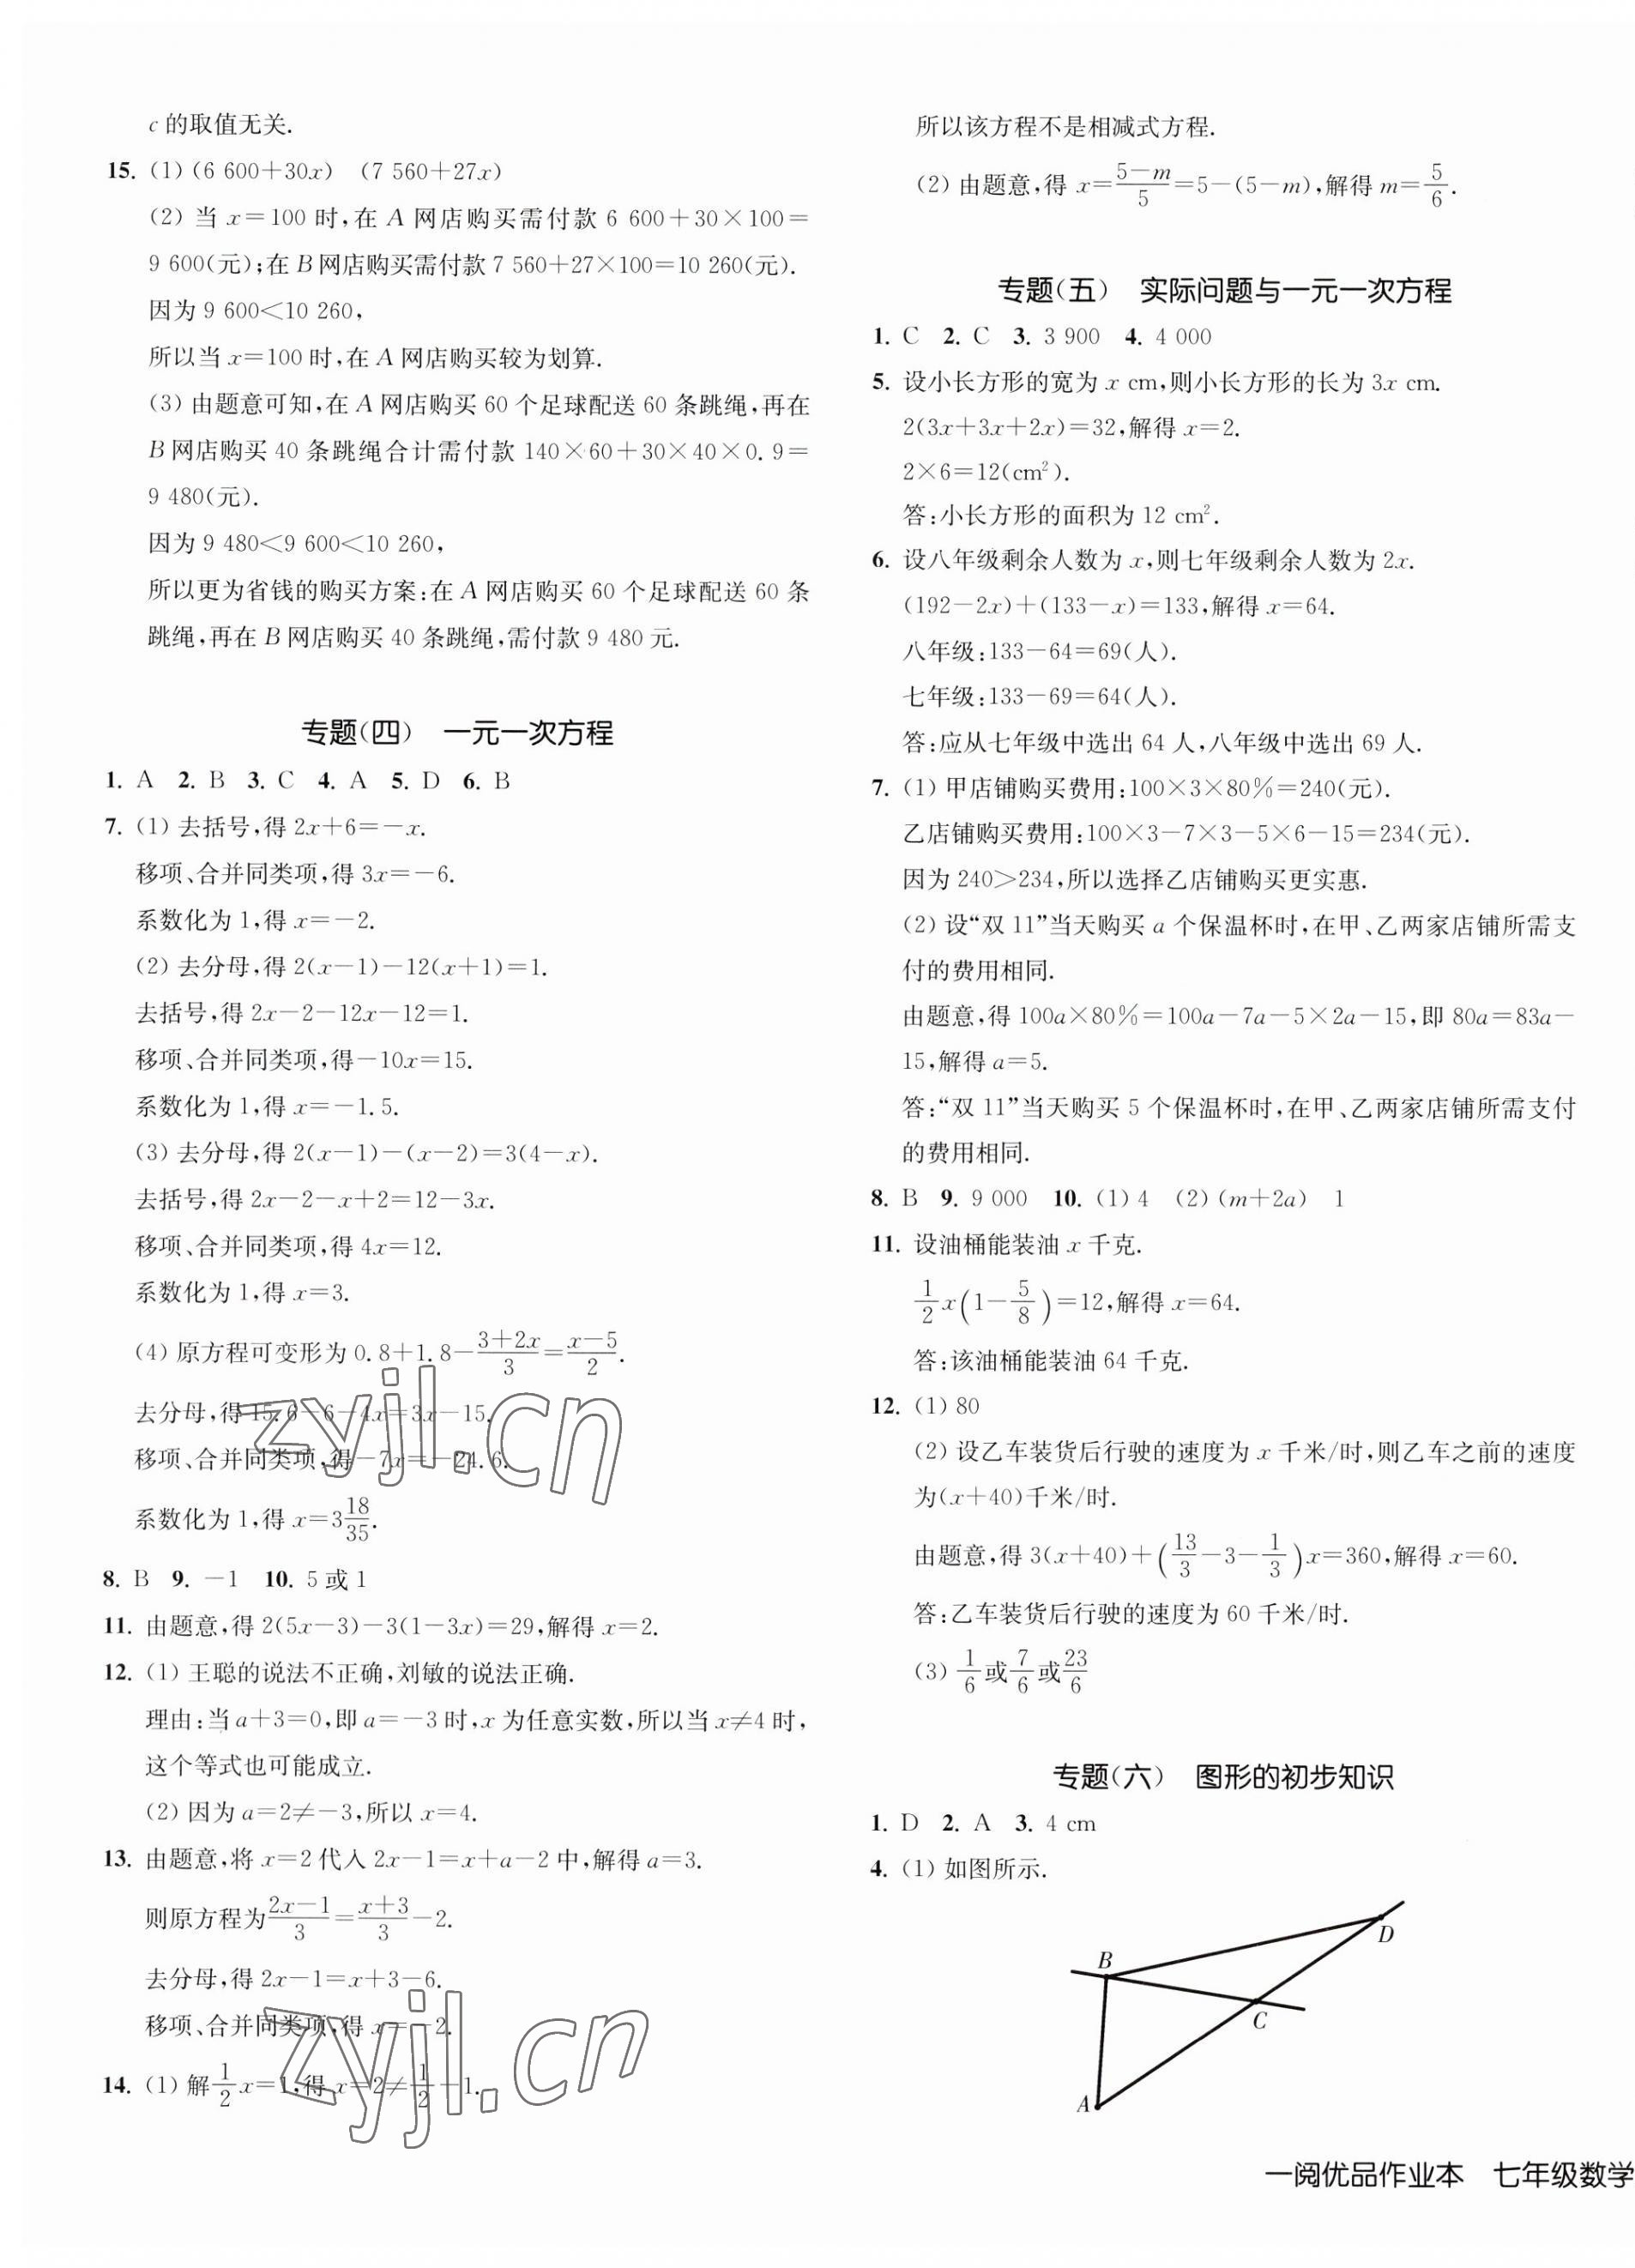 c 的取值无关.
15. (1) (6 600+30x) (7 560+27x)
(2) 当 x=100 时,在 A 网店购买需付款 6 600+30×100=
9 600(元);在 B 网店购买需付款 7 560+27×100=10 260(元).
因为 9 600<10 260,
所以当 x=100 时,在 A 网店购买较为划算.
(3) 由题意可知,在 A 网店购买 60 个足球配送 60 条跳绳,再在
B 网店购买 40 条跳绳合计需付款 140×60+30×40×0.9=
9 480(元).
因为 9 480<9 600<10 260,
所以更为省钱的购买方案:在 A 网店购买 60 个足球配送 60 条
跳绳,再在 B 网店购买 40 条跳绳,需付款 9 480 元.
专题(四) 一元一次方程
1. A 2. B 3. C 4. A 5. D 6. B
7. (1) 去括号,得 2x+6=-x.
移项、合并同类项,得 3x=-6.
系数化为 1,得 x=-2.
(2) 去分母,得 2(x-1)-12(x+1)=1.
去括号,得 2x-2-12x-12=1.
移项、合并同类项,得-10x=15.
系数化为 1,得 x=-1.5.
(3) 去分母,得 2(x-1)-(x-2)=3(4-x).
去括号,得 2x-2-x+2=12-3x.
移项、合并同类项,得 4x=12.
系数化为 1,得 x=3.
(4) 原方程可变形为 0.8+1.8-\frac{3+2x}{3}=\frac{x-5}{2}.
去分母,得 15.6-6-4x=3x-15.
移项、合并同类项,得-7x=-24.6.
系数化为 1,得 x=3\frac{18}{35}.
8. B 9. -1 10. 5 或 1
11. 由题意,得 2(5x-3)-3(1-3x)=29,解得 x=2.
12. (1) 王聪的说法不正确,刘敏的说法正确.
理由:当 a+3=0,即 a=-3 时,x 为任意实数,所以当 x≠4 时,
这个等式也可能成立.
(2) 因为 a=2≠-3,所以 x=4.
13. 由题意,将 x=2 代入 2x-1=x+a-2 中,解得 a=3.
则原方程为\frac{2x-1}{3}=\frac{x+3}{3}-2.
去分母,得 2x-1=x+3-6.
移项、合并同类项,得 x=-2.
14. (1) 解\frac{1}{2}x=1,得 x=2≠\frac{1}{2}-1.
所以该方程不是相减式方程.
(2) 由题意,得 x=\frac{5-m}{5}=5-(5-m),解得 m=\frac{5}{6}.
专题(五) 实际问题与一元一次方程
1. C 2. C 3. 3 900 4. 4 000
5. 设小长方形的宽为 x cm,则小长方形的长为 3x cm.
2(3x+3x+2x)=32,解得 x=2.
2×6=12(cm²).
答:小长方形的面积为 12 cm².
6. 设八年级剩余人数为 x,则七年级剩余人数为 2x.
(192-2x)+(133-x)=133,解得 x=64.
八年级:133-64=69(人).
七年级:133-69=64(人).
答:应从七年级中选出 64 人,八年级中选出 69 人.
7. (1) 甲店铺购买费用:100×3×80%=240(元).
乙店铺购买费用:100×3-7×3-5×6-15=234(元).
因为 240>234,所以选择乙店铺购买更实惠.
(2) 设“双 11”当天购买 a 个保温杯时,在甲、乙两家店铺所需支
付的费用相同.
由题意,得 100a×80%=100a-7a-5×2a-15,即 80a=83a-
15,解得 a=5.
答:“双 11”当天购买 5 个保温杯时,在甲、乙两家店铺所需支付
的费用相同.
8. B 9. 9 000 10. (1) 4 (2) (m+2a) 1
11. 设油桶能装油 x 千克.
\frac{1}{2}x(1-\frac{5}{8})=12,解得 x=64.
答:该油桶能装油 64 千克.
12. (1) 80
(2) 设乙车装货后行驶的速度为 x 千米/时,则乙车之前的速度
为(x+40)千米/时.
由题意,得 3(x+40)+(\frac{13}{3}-3-\frac{1}{3})x=360,解得 x=60.
答:乙车装货后行驶的速度为 60 千米/时.
(3) \frac{1}{6}或\frac{7}{6}或\frac{23}{6}
专题(六) 图形的初步知识
1. D 2. A 3. 4 cm
4. (1) 如图所示.
D
B
C
A
一阅优品作业本 七年级数学
zyjl.cn
zyjl.cn